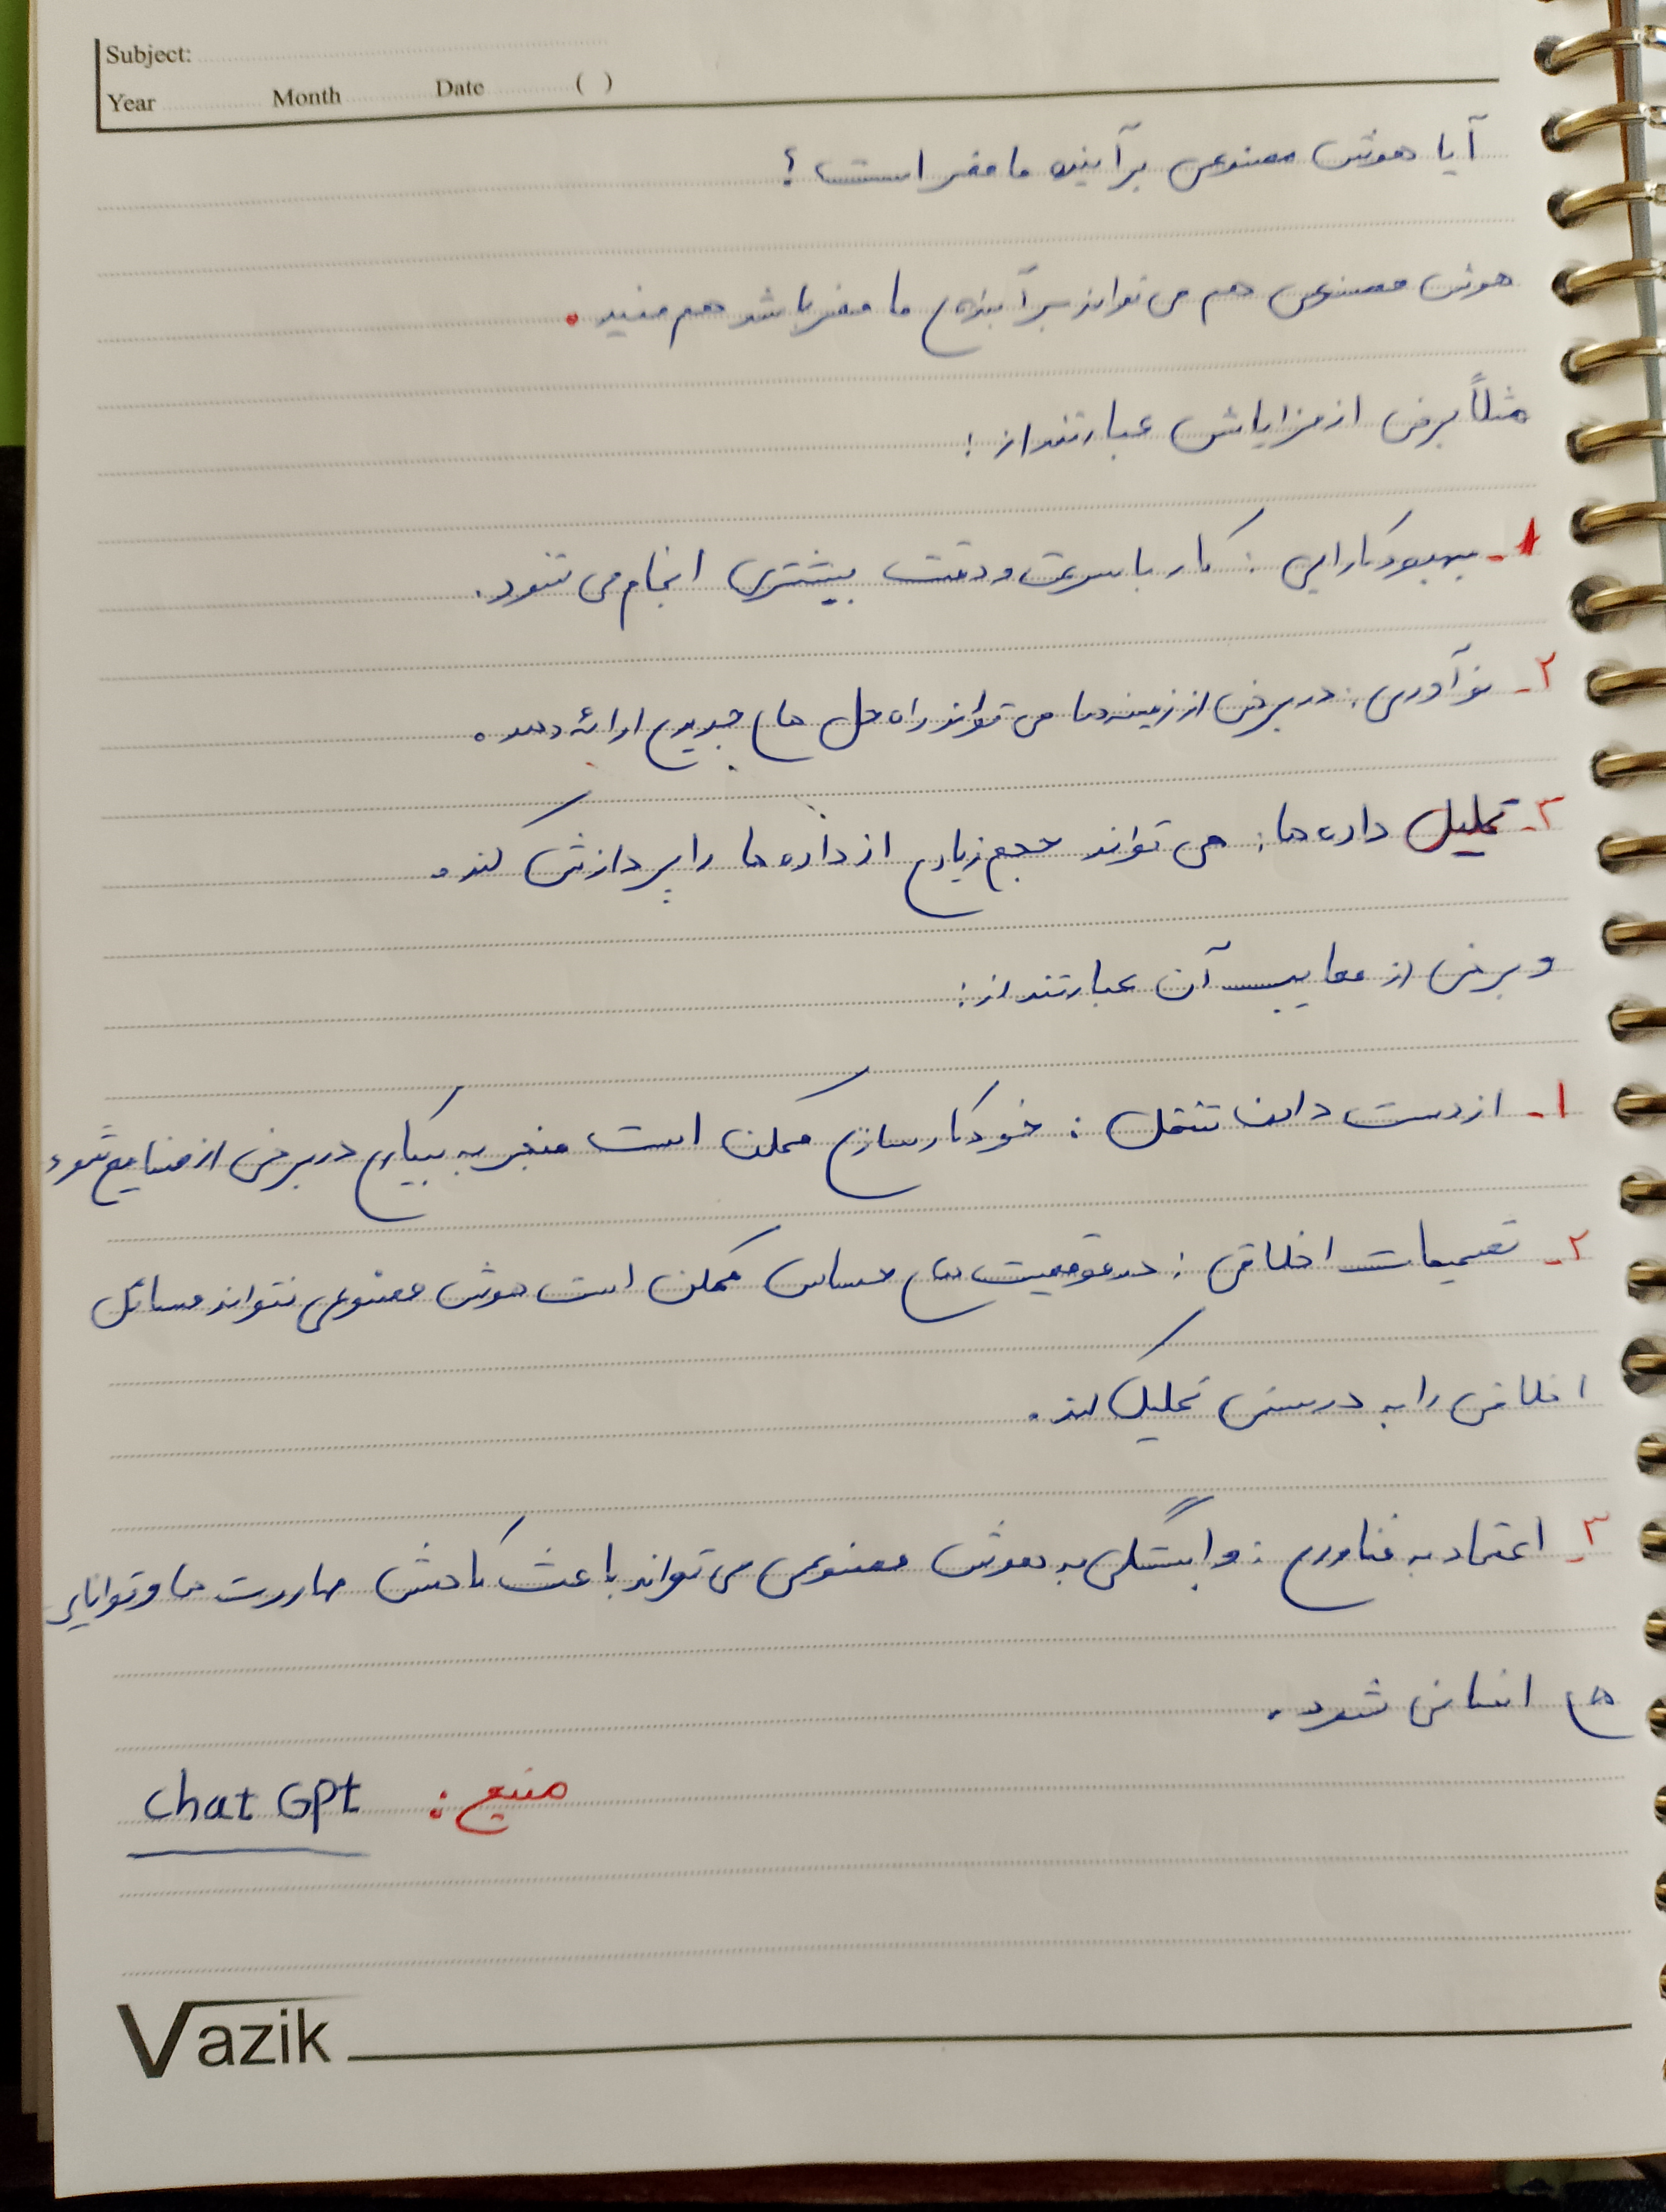 Subject:
Year Month Date ( )
آیا هوش مصنوعی بر آینده ما مضر است ؟
هوش مصنوعی هم می تواند بر آینده ی ما مضر باشد هم مفید .
مثلاً برخی از مزایاش عبارتند از :
۱- بهبود کارایی : کار با سرعت و دقت بیشتری انجام می شود .
۲- نوآوری : در برخی از زمینه ها می تواند راه حل های جدیدی ارائه دهد .
۳- تحلیل داده ها : می تواند حجم زیادی از داده ها را پردازش کند .
و برخی از معایب آن عبارتند از :
۱- از دست دادن شغل : خودکارسازی ممکن است منجر به بیکاری در برخی از صنایع شود
۲- تصمیمات اخلاقی : در موقعیت های حساس ممکن است هوش مصنوعی نتواند مسائل
اخلاقی را به درستی تحلیل کند .
۳- اعتماد به فناوری : وابستگی به هوش مصنوعی می تواند باعث کاهش مهاررت ها و توانایی
های انسانی شود .
منبع : chat GPt
Vazik